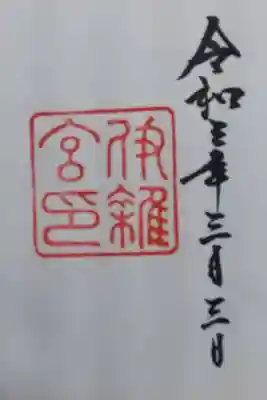 令和三年三月三日
伊雜
宮印